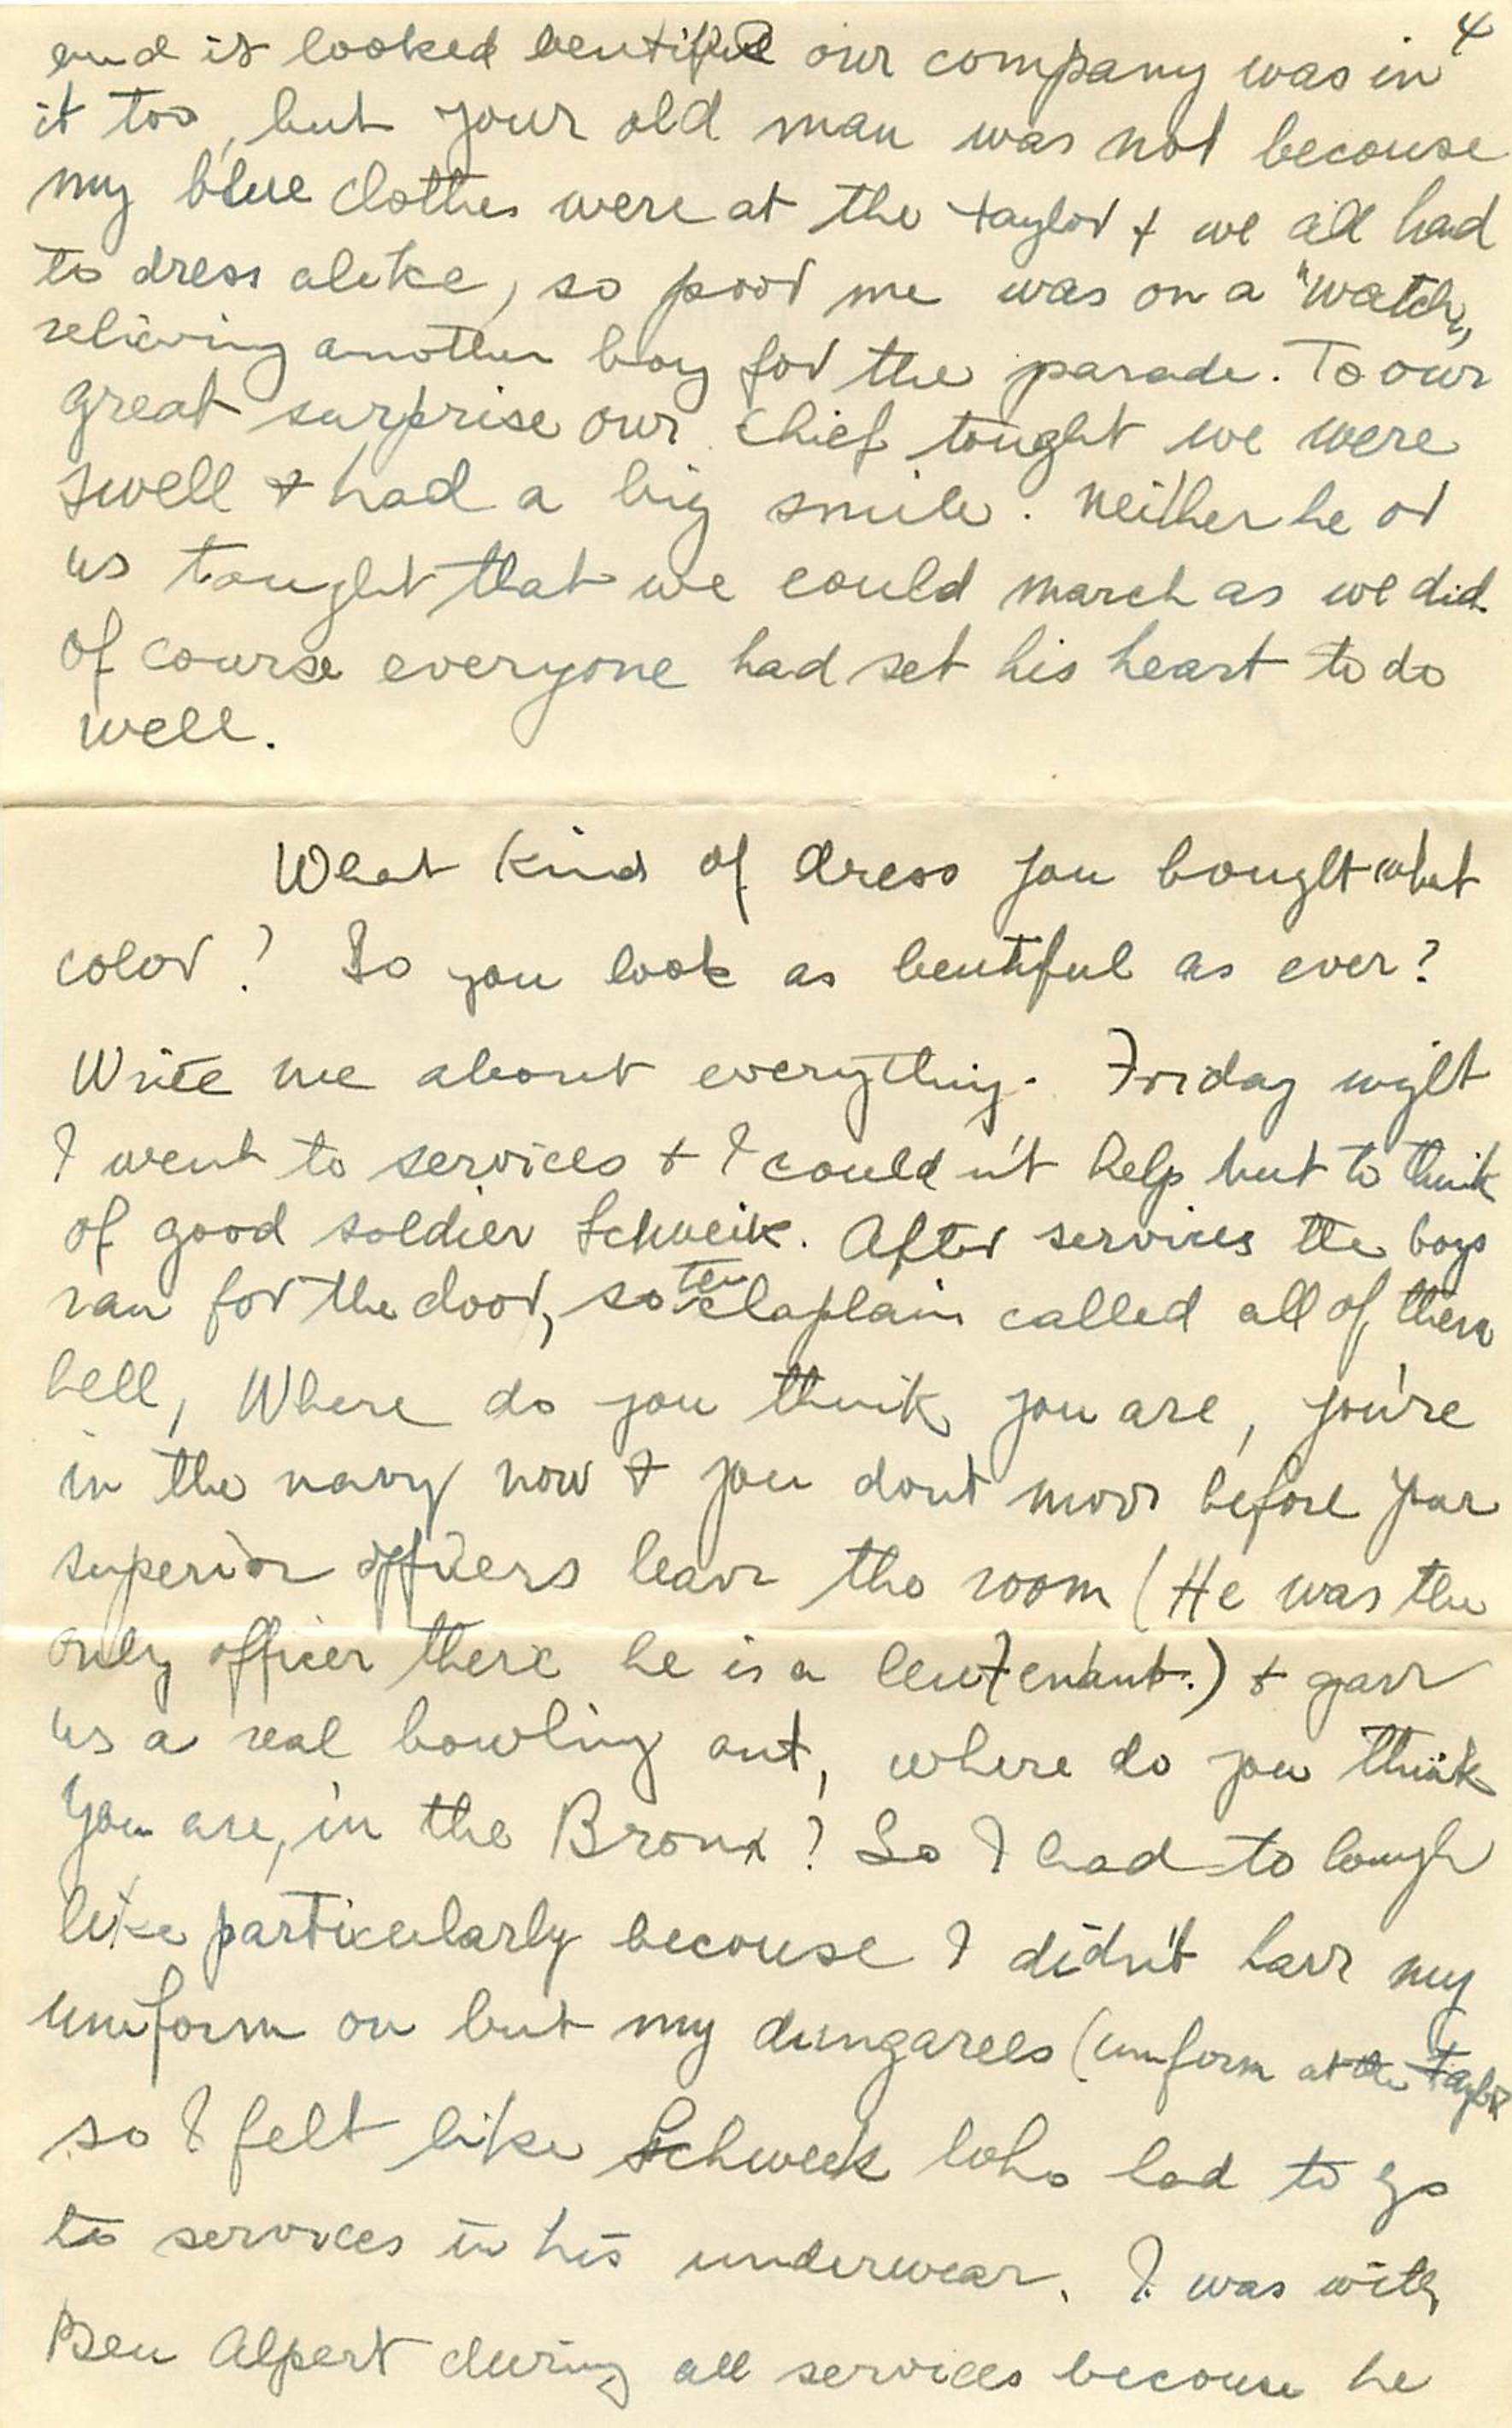 4
and it looked beutiful our company was in
it too, but your old man was not becouse
my blue clothes were at the taylor + we all had
to dress alike, so poor me was on a "watch"
relieving another boy for the parade. To our
great surprise our chief tought we were
swell + had a big smile. Neither he or
us tought that we could march as we did.
Of course everyone had set his heart to do
well.
What kind of dress you bought what
color? Do you look as beutiful as ever?
Write me about everything. Friday night
I went to services + I couldn't help but to think
of good soldier Schweik. After services the boys
ran for the door, so the chaplain called all of them
hell, Where do you think you are, you're
in the navy now + you dont move before your
superior officers leave the room (He was the
only officer there he is a leutenant.) + gave
us a real bowling out, where do you think
you are, in the Bronx? So I had to laugh
like particularly becouse I didn't have my
uniform on but my dungarees (uniform at the taylor
so I felt like Schweek who had to go
to services in his underwear. I was with
Ben Alpert during all services becouse he